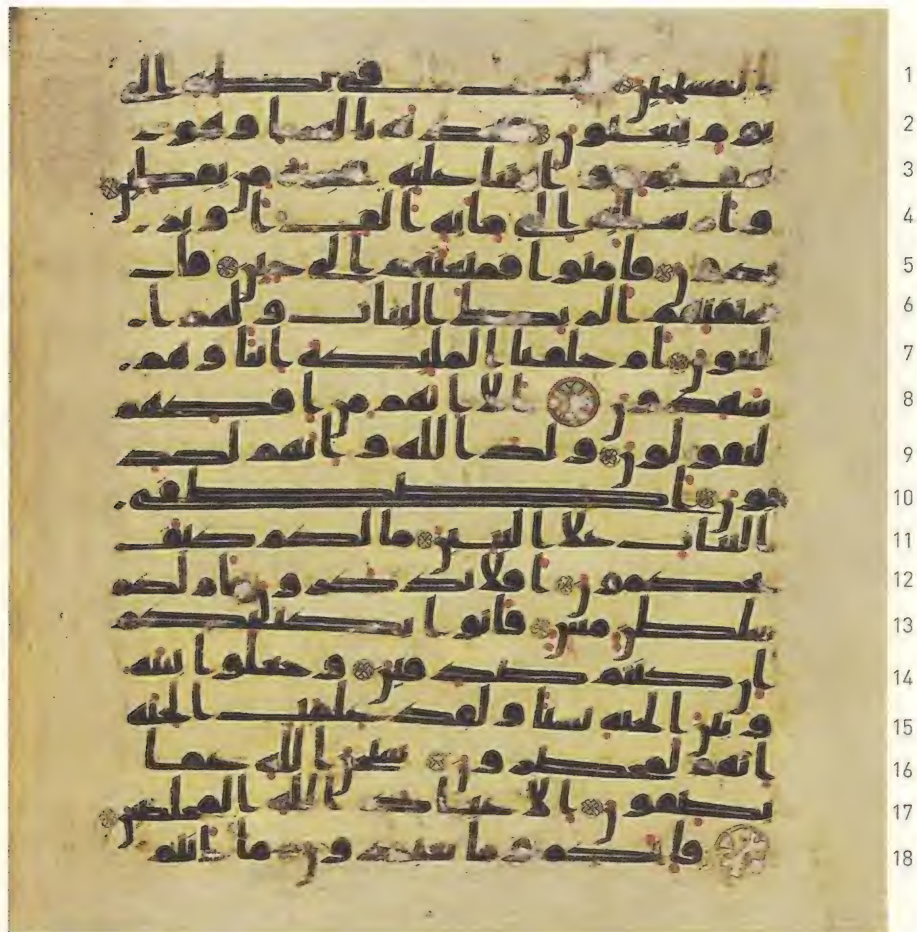 1 المسبحين للبث في بطنه الى
2 يوم يبعثون فنبذنه بالعرا وهو
3 سقيم وانبتنا عليه شجرة من يقطين
4 وارسلنه الى مائة الف او يز
5 يدون فامنوا فمتعنهم الى حين فا
6 ستفتهم الربك البنات ولهم ا
7 لبنون ام خلقنا الملئكة انثا وهم
8 شهدون الا انهم من افكهم
9 ليقولون ولد الله وانهم لكذ
10 بون اصطفى
11 البنات على البنين ما لكم كيف
12 تحكمون افلا تذكرون ام لكم
13 سلطن مبين فاتوا بكتبكم
14 ان كنتم صدقين وجعلوا بينه
15 وبين الجنة نسبا ولقد علمت الجنة
16 انهم لمحضرون سبحن الله عما
17 يصفون الا عباد الله المخلصين
18 فانكم وما تعبدون ما انتم